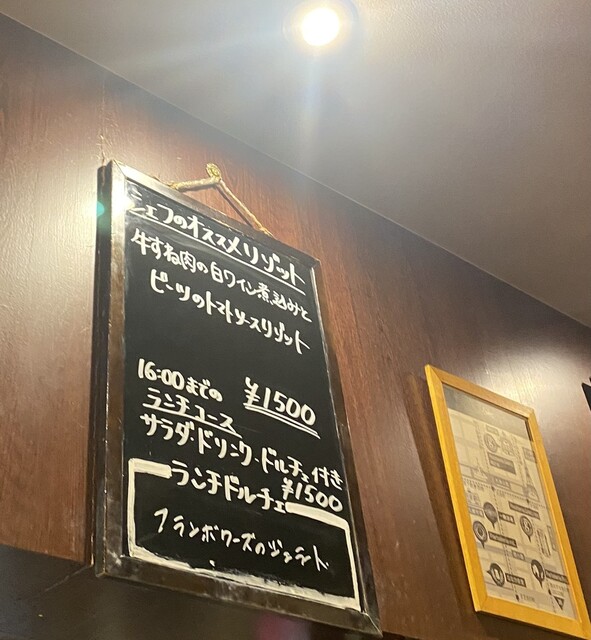 シェフのオススメリゾット
牛すね肉の白ワイン煮込みと
ビーツのトマトソースリゾット
¥1500
16:00までの
ランチコース
サラダ・ドリンク・ドルチェ付き
¥1500
ランチドルチェ
フランボワーズのジェラート